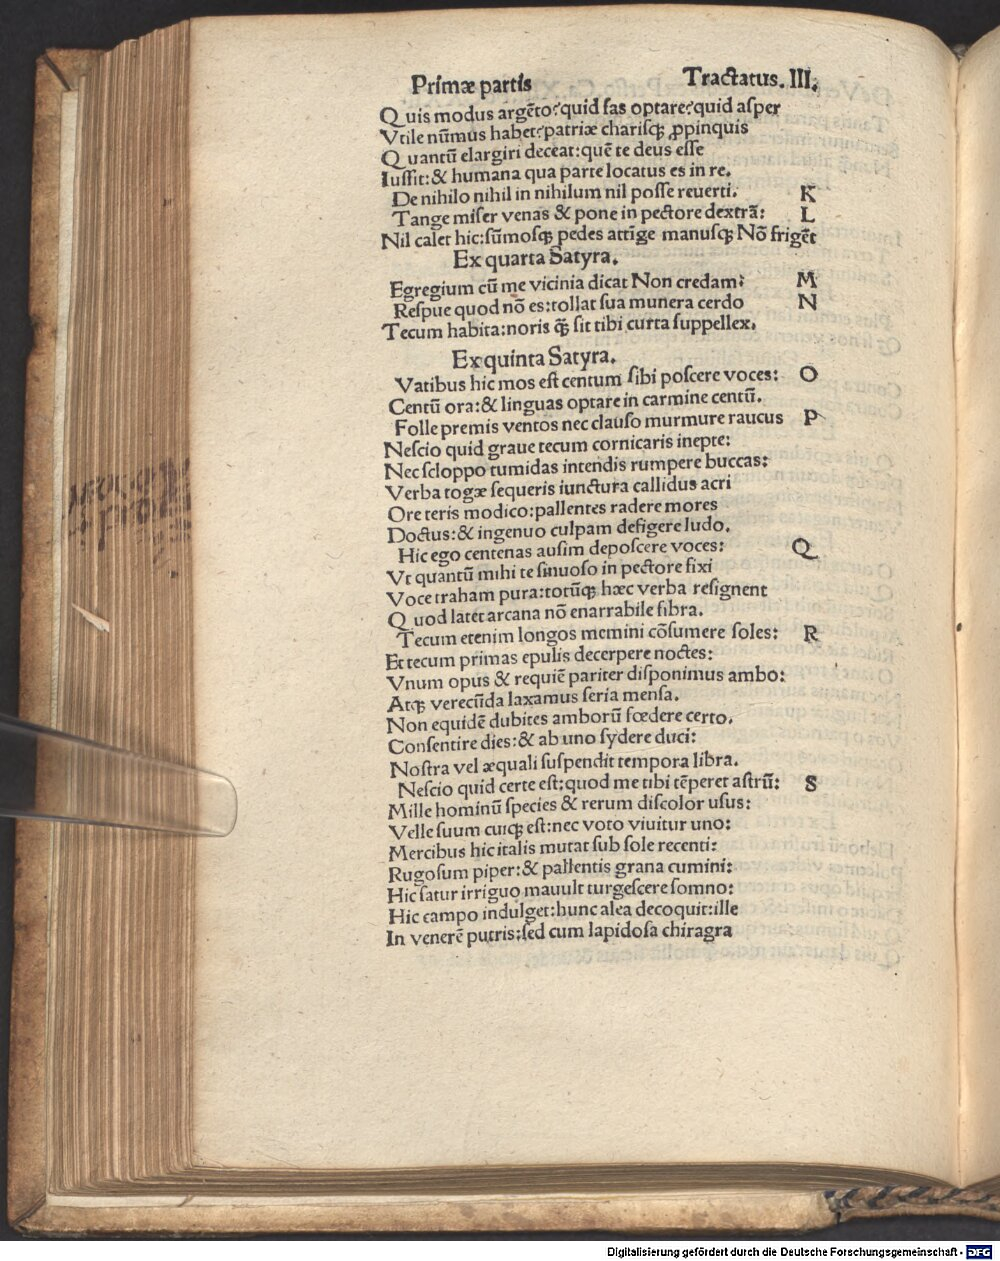 Primæ partis Tractatus. III.
Quis modus argẽto? quid fas optare? quid asper
Vtile nũmus habet? patriæ charisq; ꝓpinquis
Quantũ elargiri deceat: quẽ te deus esse
Iussit: & humana qua parte locatus es in re.
De nihilo nihil in nihilum nil posse reuerti. K
Tange miser venas & pone in pectore dextrã: L
Nil calet hic: sũmosq; pedes attĩge manusq; Nõ frigẽt
Ex quarta Satyra.
Egregium cũ me vicinia dicat Non credam? M
Respue quod nõ es: tollat sua munera cerdo N
Tecum habita: noris q̃ sit tibi curta suppellex.
Ex quinta Satyra.
Vatibus hic mos est centum sibi poscere voces: O
Centũ ora: & linguas optare in carmine centũ.
Folle premis ventos nec clauso murmure raucus P
Nescio quid graue tecum cornicaris inepte:
Nec scloppo tumidas intendis rumpere buccas:
Verba togæ sequeris iunctura callidus acri
Ore teris modico: pallentes radere mores
Doctus: & ingenuo culpam defigere ludo.
Hic ego centenas ausim deposcere voces: Q
Vt quantũ mihi te sinuoso in pectore fixi
Voce traham pura: totũq; hæc verba resignent
Quod latet arcana nõ enarrabile fibra.
Tecum etenim longos memini cõsumere soles: R
Et tecum primas epulis decerpere noctes:
Vnum opus & requiẽ pariter disponimus ambo:
Atq; verecũda laxamus seria mensa.
Non equidẽ dubites amborũ fœdere certo.
Consentire dies: & ab uno sydere duci:
Nostra vel æquali suspendit tempora libra.
Nescio quid certe est: quod me tibi tẽperet astrũ: S
Mille hominũ species & rerum discolor usus:
Velle suum cuiq; est: nec voto viuitur uno:
Mercibus hic italis mutat sub sole recenti:
Rugosum piper: & pallentis grana cumini:
Hic satur irriguo mauult turgescere somno:
Hic campo indulget: hunc alea decoquit: ille
In venerẽ putris: sed cum lapidosa chiragra
Digitalisierung gefördert durch die Deutsche Forschungsgemeinschaft - DFG